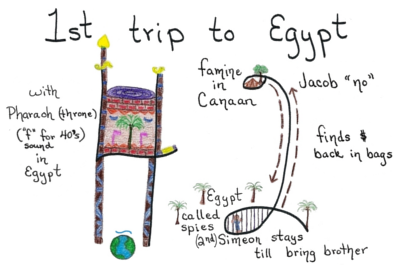 1st trip to Egypt
with
Pharaoh (throne)
("f" for 40's)
sound
in
Egypt
famine
in
Canaan
Jacob "no"
finds $
back in bags
Egypt
called
spies
(2nd) Simeon stays
till bring brother